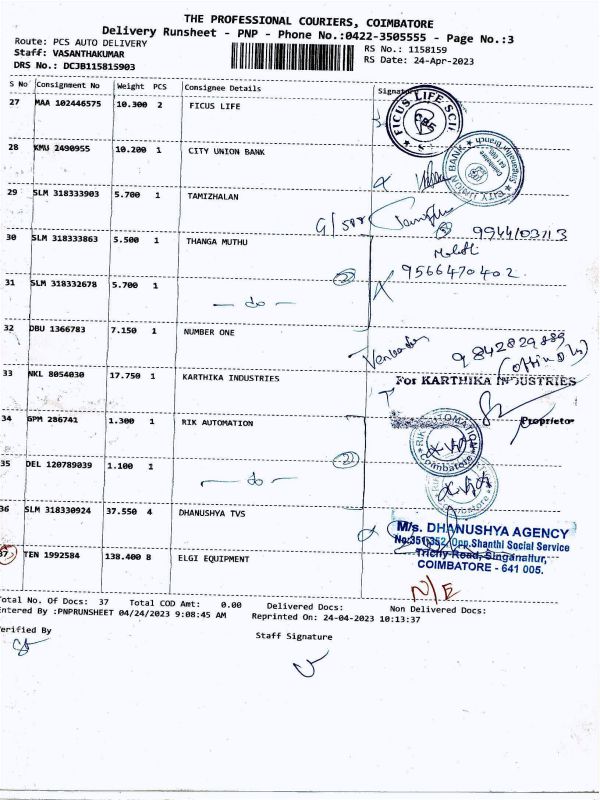 THE PROFESSIONAL COURIERS, COIMBATORE
Delivery Runsheet - PNP - Phone No.:0422-3505555 - Page No.:3
Route: PCS AUTO DELIVERY
RS No.: 1158159
Staff: VASANTHAKUMAR
RS Date: 24-Apr-2023
DRS No.: DCJB115815903
S No Consignment No Weight PCS Consignee Details Signature
27 MAA 102446575 10.300 2 FICUS LIFE
FICUS LIFE SCI
28 KMU 2490955 10.200 1 CITY UNION BANK
CITY UNION BANK
Coimbatore
641 005
29 SLM 318333903 5.700 1 TAMIZHALAN
G/
9944103713
30 SLM 318333863 5.500 1 THANGA MUTHU
9566470402
31 SLM 318332678 5.700 1
2
— do —
32 DBU 1366783 7.150 1 NUMBER ONE
9842829889
33 NKL 8054030 17.750 1 KARTHIKA INDUSTRIES
For KARTHIKA INDUSTRIES
Proprietor
34 GPM 286741 1.300 1 RIK AUTOMATION
RIK AUTOMATION
Coimbatore
35 DEL 120789039 1.100 1
2
— do —
36 SLM 318330924 37.550 4 DHANUSHYA TVS
M/s. DHANUSHYA AGENCY
No:351,352, Opp.Shanthi Social Service
Trichy Road, Singanallur,
COIMBATORE - 641 005.
37 TEN 1992584 138.400 8 ELGI EQUIPMENT
N/E
Total No. Of Docs: 37 Total COD Amt: 0.00 Delivered Docs: Non Delivered Docs:
Entered By :PNPRUNSHEET 04/24/2023 9:08:45 AM Reprinted On: 24-04-2023 10:13:37
Verified By
Staff Signature